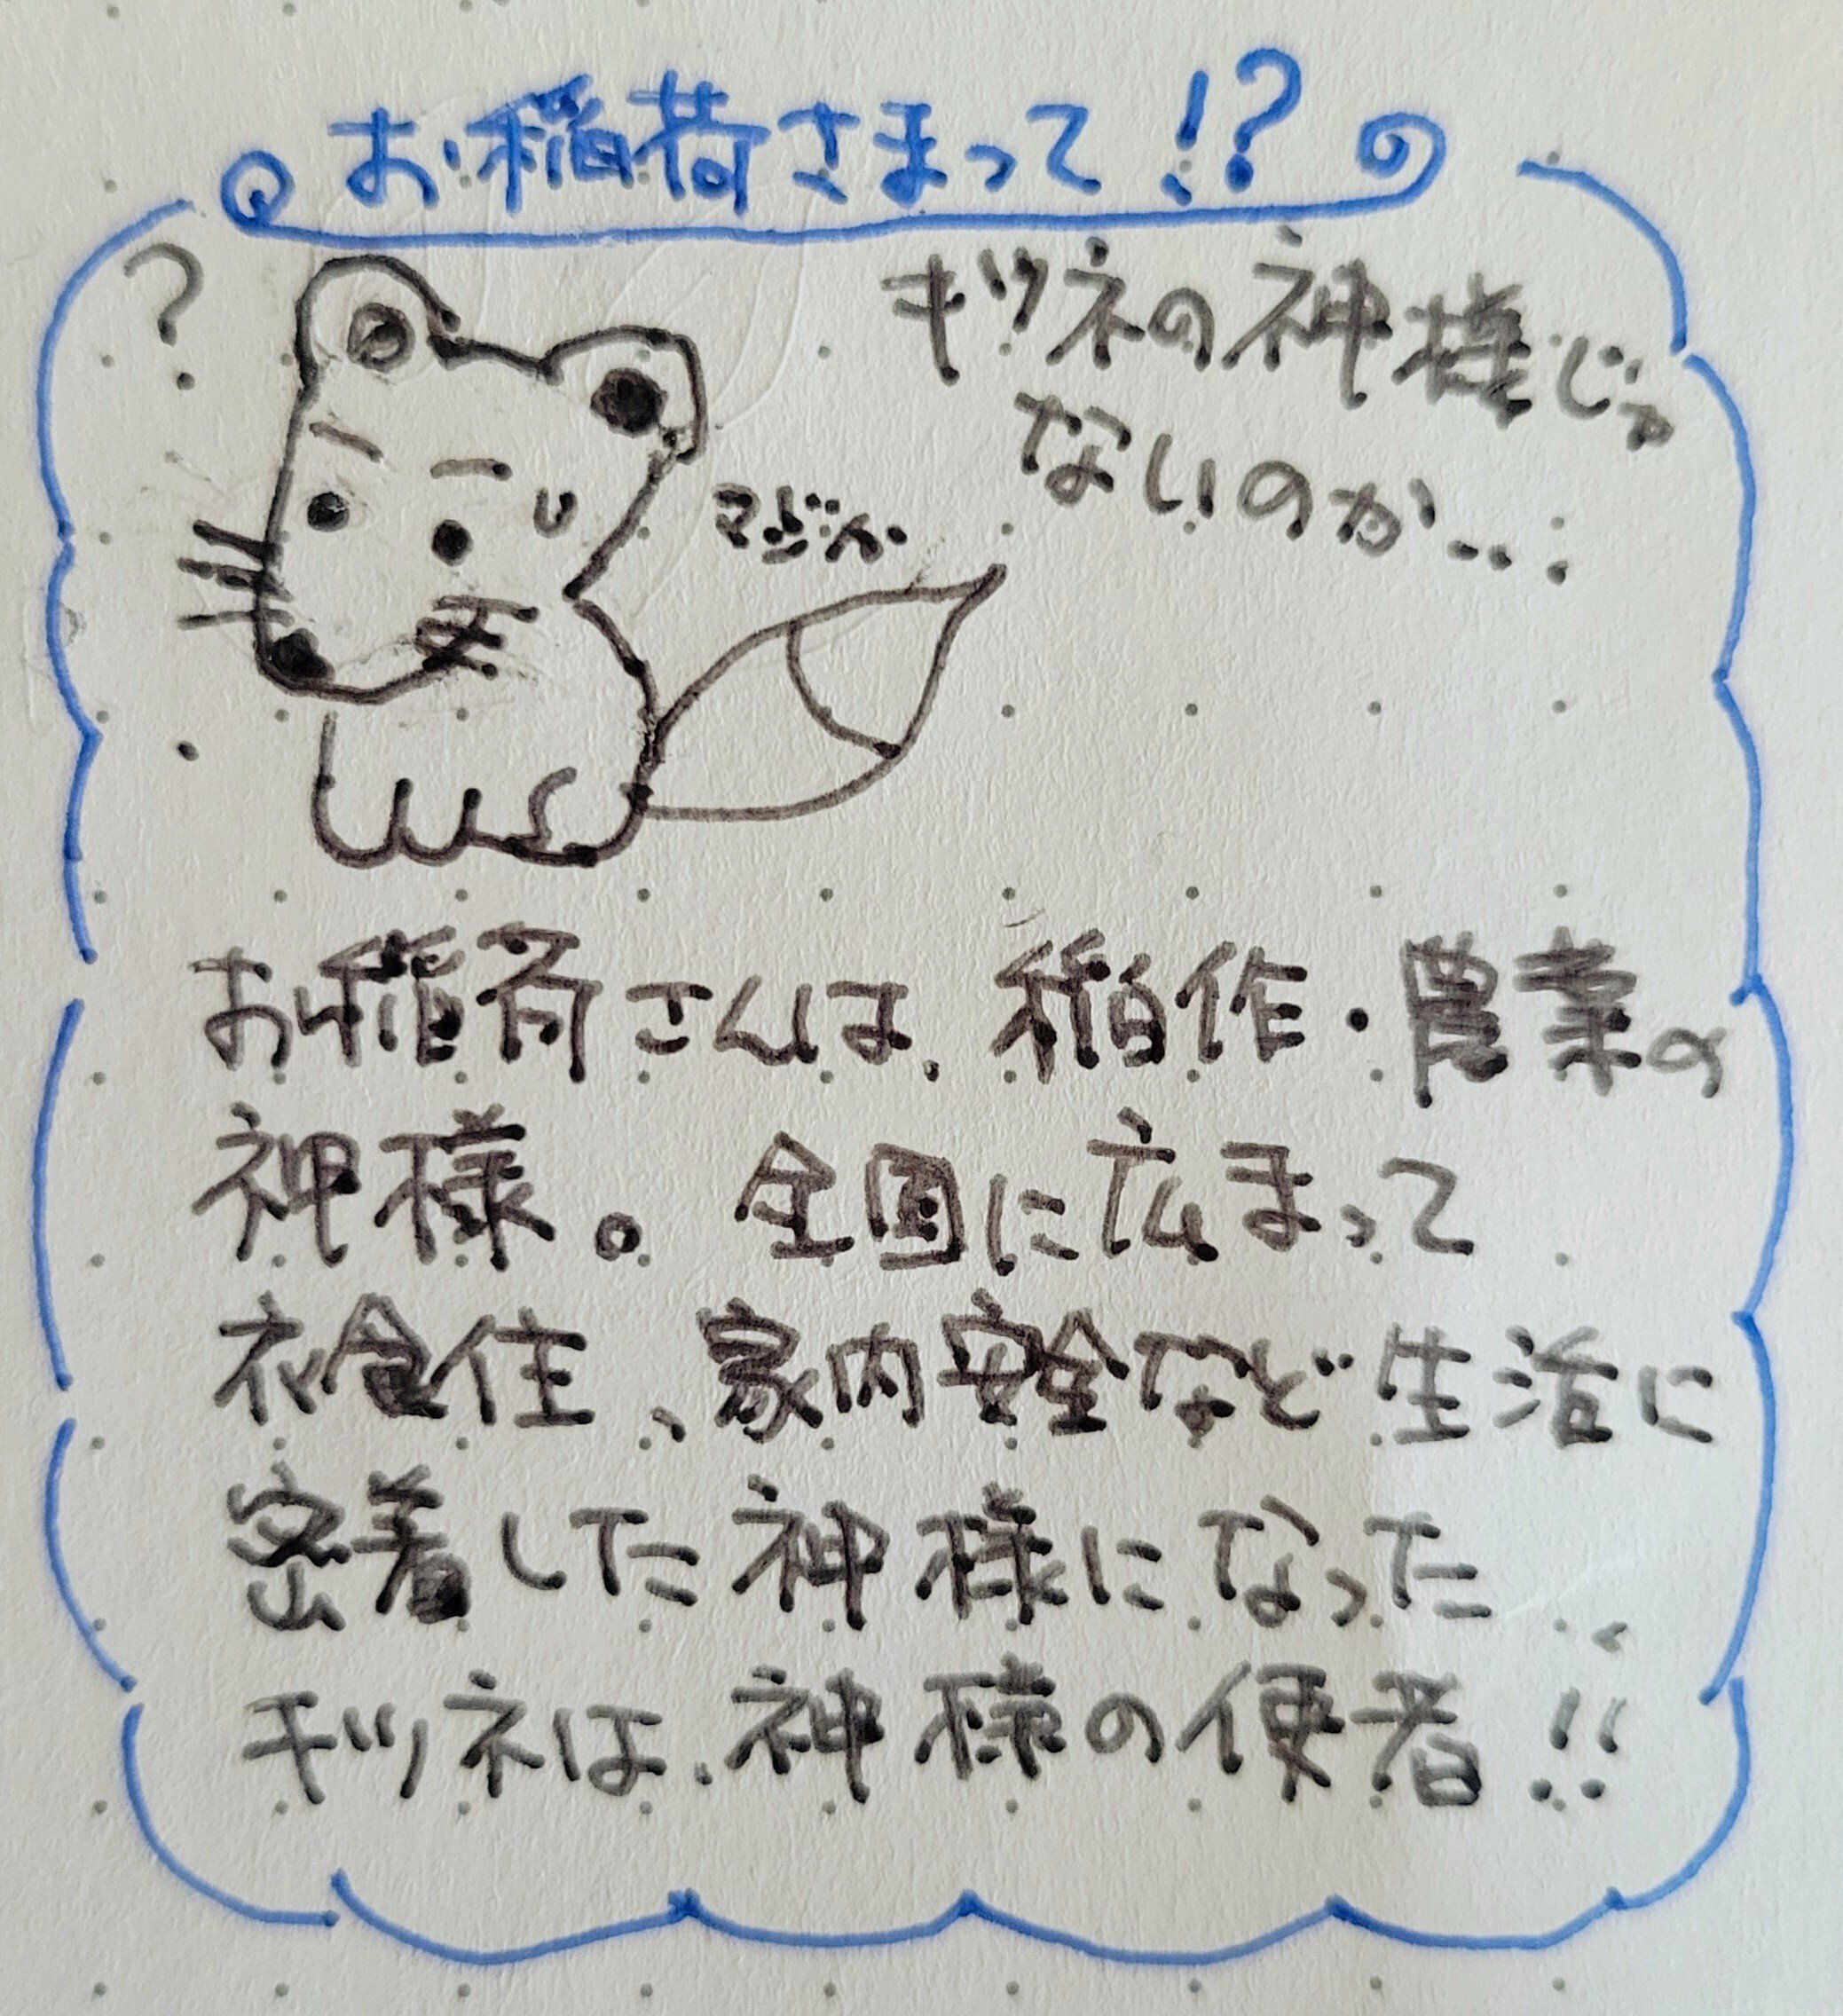 お稲荷さまって!?
?
キツネの神様じゃ
ないのか...
マジか
お稲荷さんは、稲作・農業の
神様。全国に広まって
衣食住、家内安全など生活に
密着した神様になった、
キツネは、神様の使者!!